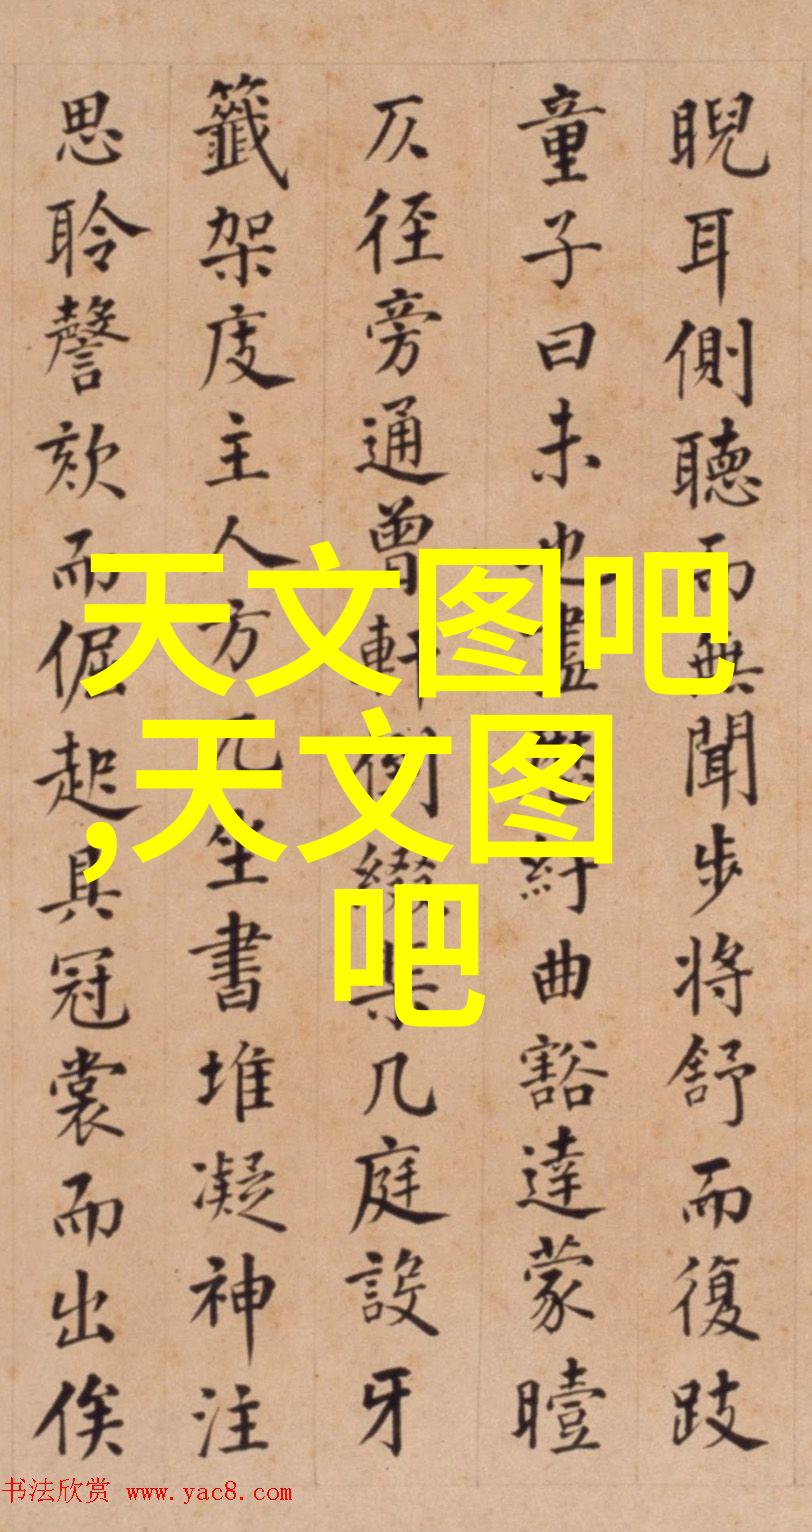 睨耳側聽而無聞步将舒而復跂
童子曰未也盡紆曲豁達蒙曀
仄径旁通曾軒倒綴棐几庭設牙
籤架庋主人方兀坐書堆凝神注
思聆謦欬而倔起具冠裳而出俟
天文图吧
,天文图
吧
书法欣赏 www.yac8.com